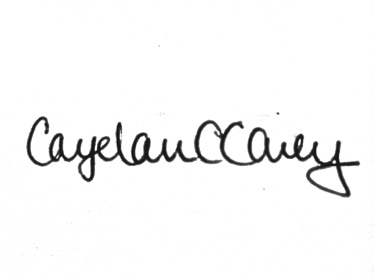 Cayelan C Carey